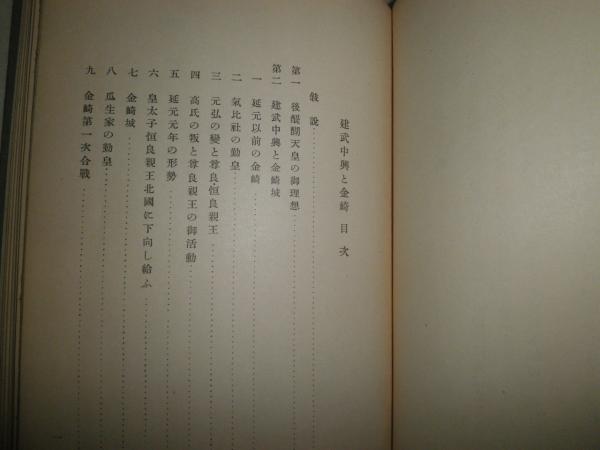 建武中興と金崎 目次
敍説
第一 後醍醐天皇の御理想
第二 建武中興と金崎城
一 延元以前の金崎
二 氣比社の勤皇
三 元弘の變と尊良・恒良親王
四 高氏の叛と尊良親王の御活動
五 延元元年の形勢
六 皇太子恒良親王北國に下向し給ふ
七 金崎城
八 瓜生家の勤皇
九 金崎第一次合戰
一